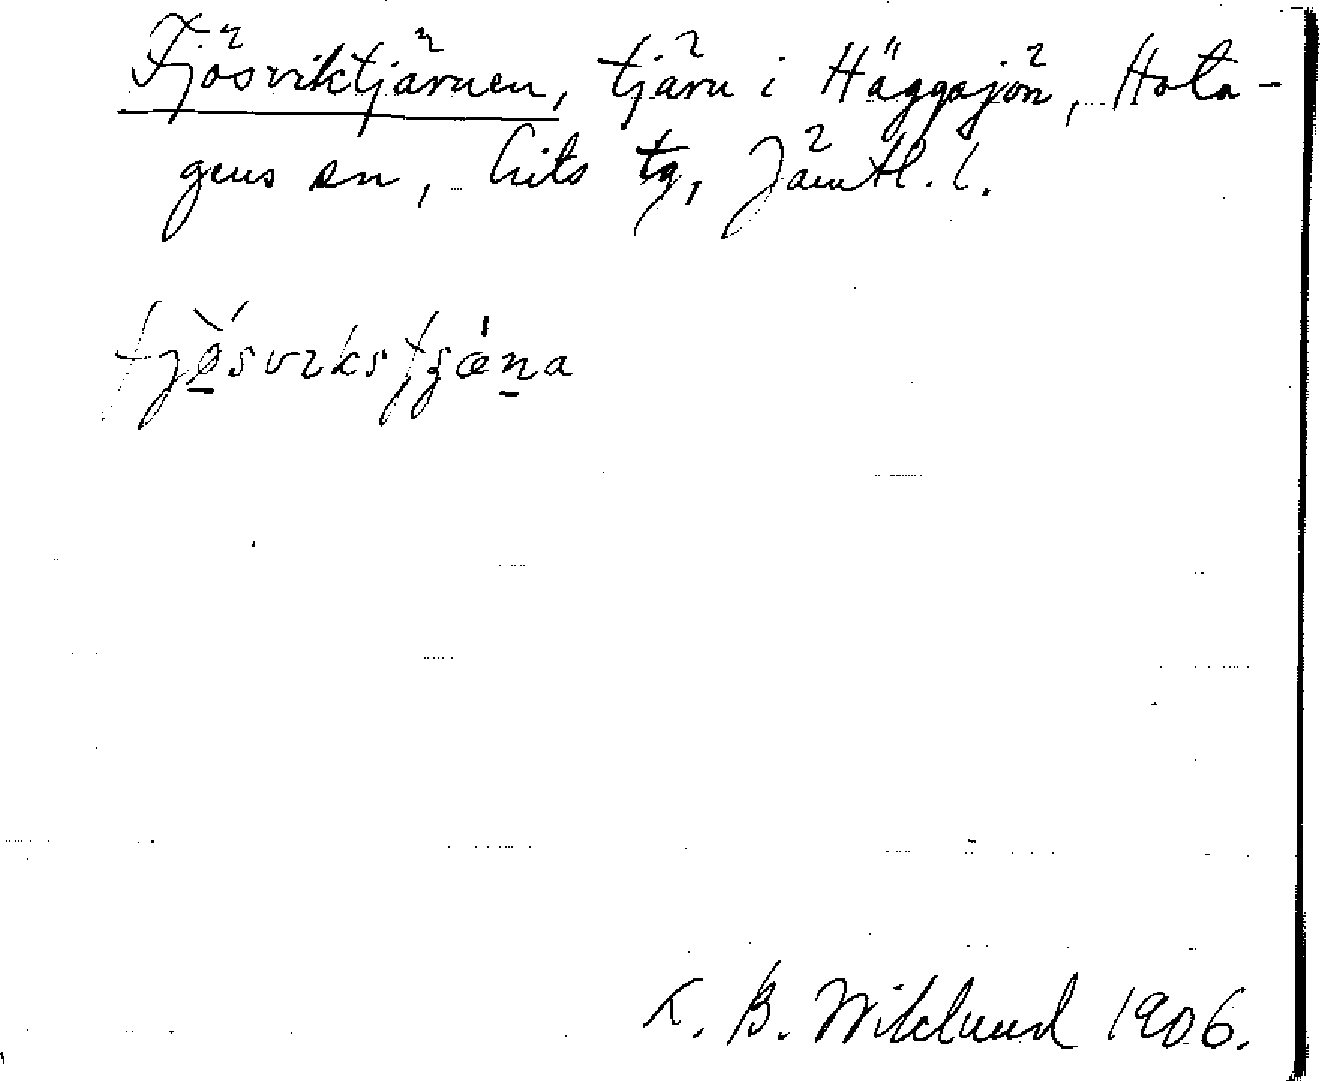 Fjösviktjärnen, tjärn i Häggsjön, Hota-
gens sn, Lits tg, Jämtl. l.
K. B. Wiklund 1906.